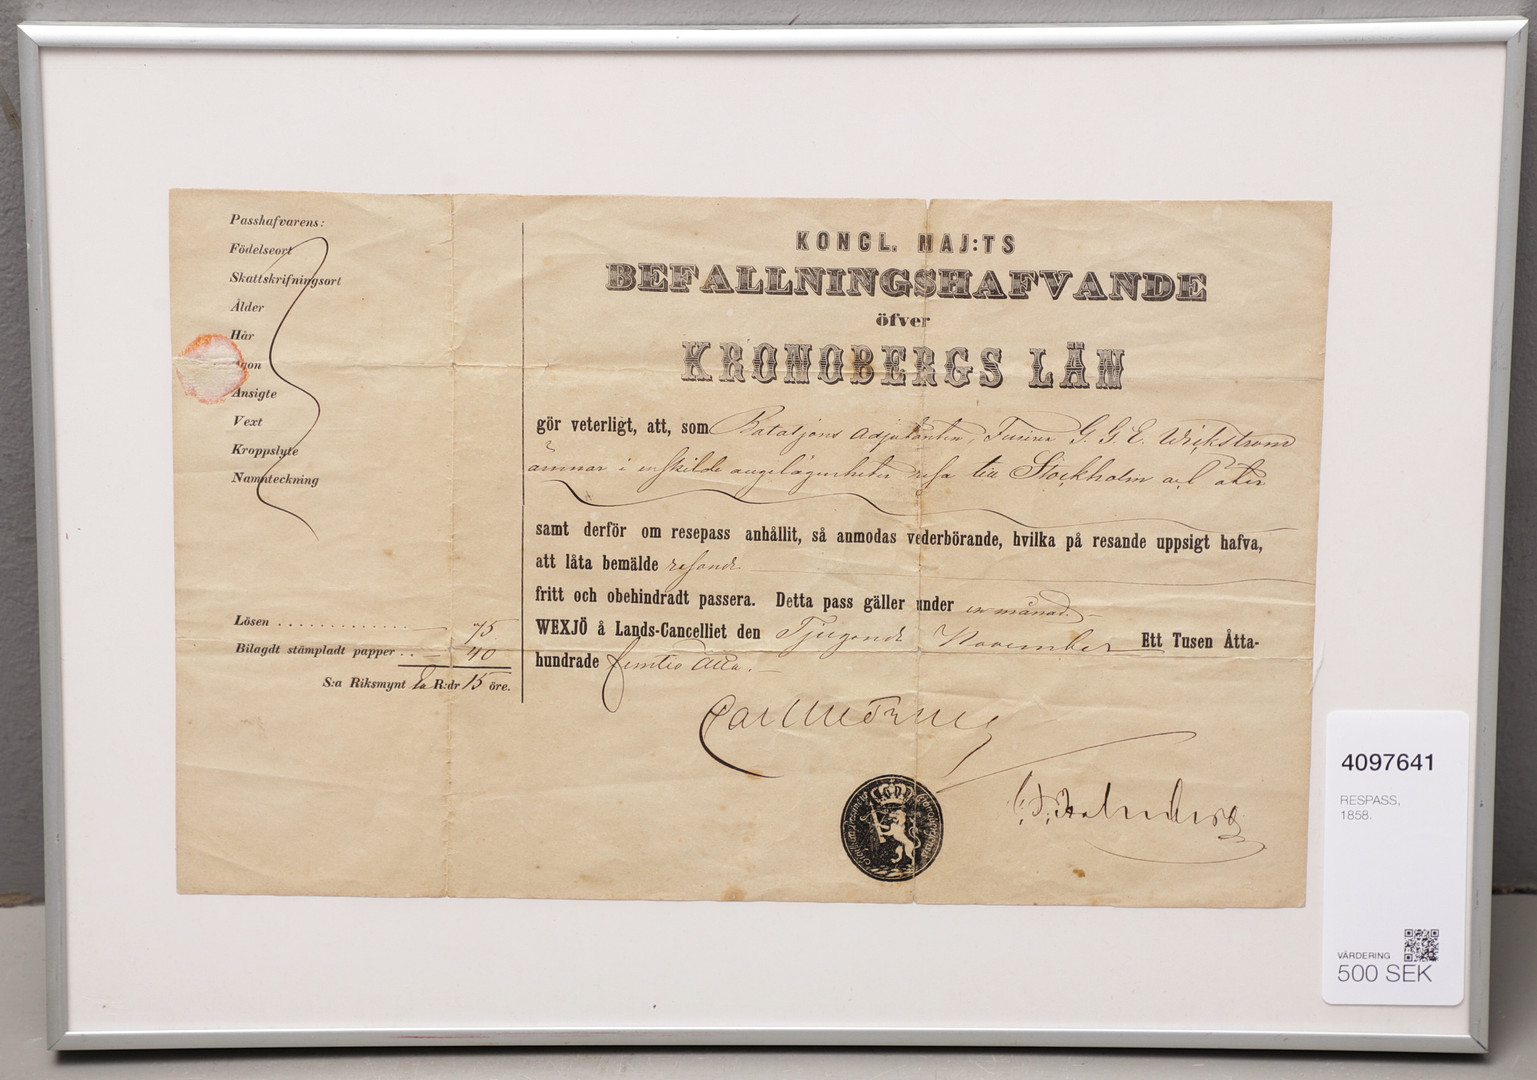 Passhafvarens:
Födelseort
Skattskrifningsort
Ålder
Hår
Ögon
Ansigte
Vext
Kroppslyte
Namnteckning
Lösen . . . . . . . . . . . . . 75
Bilagdt stämpladt papper . . 40
S:a Riksmynt R:dr 15 öre.
KONGL. MAJ:TS
BEFALLNINGSHAFVANDE
öfver
KRONOBERGS LÄN
gör veterligt, att, som Bataljons Adjutanten, G. G. E. Wickstrom
ämnar i enskilda angelägenheter resa till Stockholm och åter
samt derför om resepass anhållit, så anmodas vederbörande, hvilka på resande uppsigt hafva,
att låta bemälde resande
fritt och obehindradt passera. Detta pass gäller under en månad.
WEXJÖ å Lands-Cancelliet den Tjugonde November Ett Tusen Åtta-
hundrade femtio åtta.
4097641
RESPASS,
1858.
VÄRDERING
500 SEK